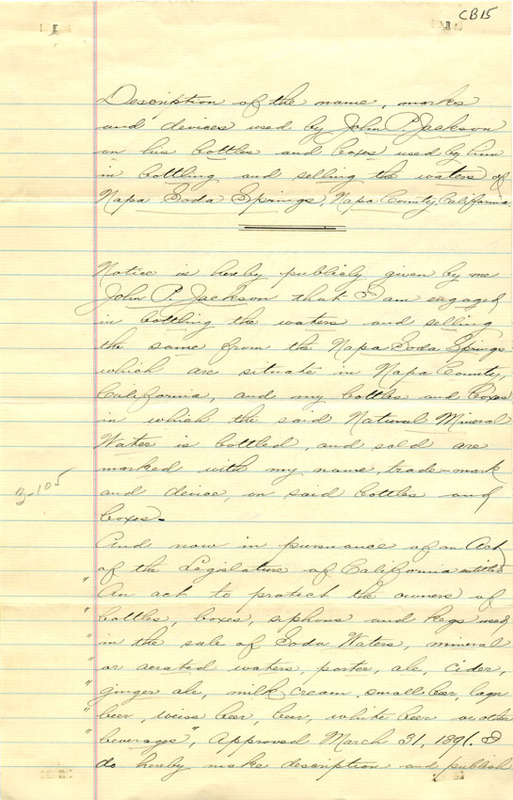 CB15
Description of the name, marks
and devices used by John P. Jackson
on his bottles and boxes used by him
in bottling and selling the waters of
Napa Soda Springs, Napa County, California.
Notice is hereby publicly given by me
John P. Jackson that I am engaged
in bottling the waters and selling
the same from the Napa Soda Springs
which are situate in Napa County,
California, and my bottles and boxes
in which the said Natural Mineral
Water is bottled, and sold are
marked with my name, trade-mark
3-105
and device, on said bottles and
boxes.
And now in pursuance of an Act
of the Legislature of California entitled
" An act to protect the owners of
" bottles, boxes, siphons and kegs used
" in the sale of Soda Waters, mineral
" or aerated waters, porter, ale, cider,
" ginger ale, milk cream, small beer, lager
" beer, weiss beer, beer, white beer or other
" beverages", Approved March 31, 1891. I
do hereby make description and publish